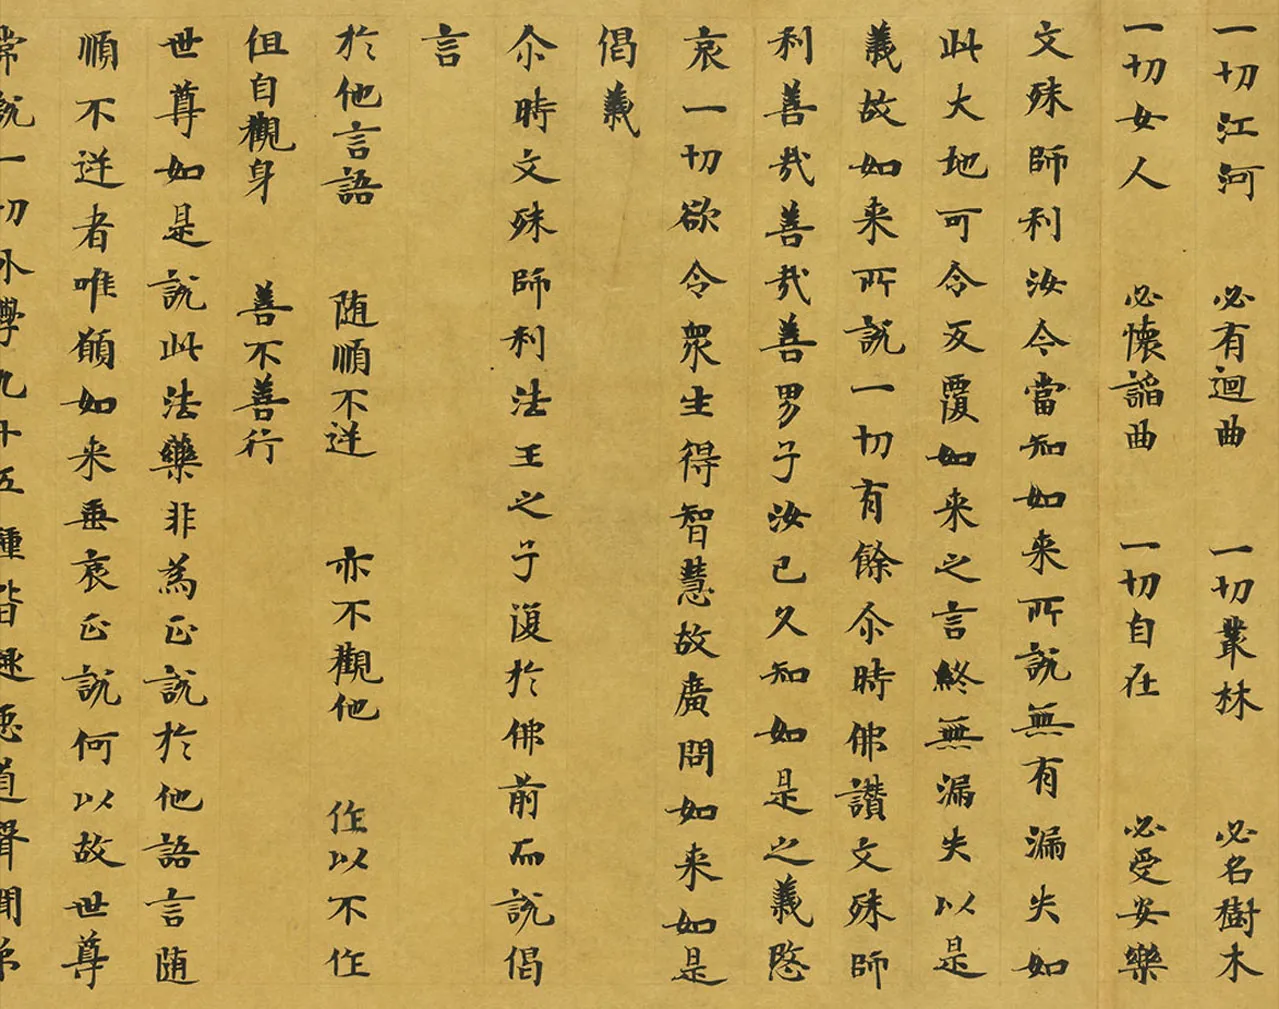 一切江河 必有迴曲 一切叢林 必名樹木
一切女人 必懷諂曲 一切自在 必受安樂
文殊師利汝今當知如来所說無有漏失如
此大地可令反覆如来之言終無漏失以是
義故如来所說一切有餘尒時佛讚文殊師
利善哉善哉善男子汝已久知如是之義愍
哀一切欲令衆生得智慧故廣問如来如是
偈義
尒時文殊師利法王之子復於佛前而說偈
言
於他言語 随順不逆 亦不觀他 作以不作
但自觀身 善不善行
世尊如是說此法藥非為正說於他語言随
順不逆者唯願如来垂哀正說何以故世尊
常說一切外學九十五種皆趣惡道聲聞弟